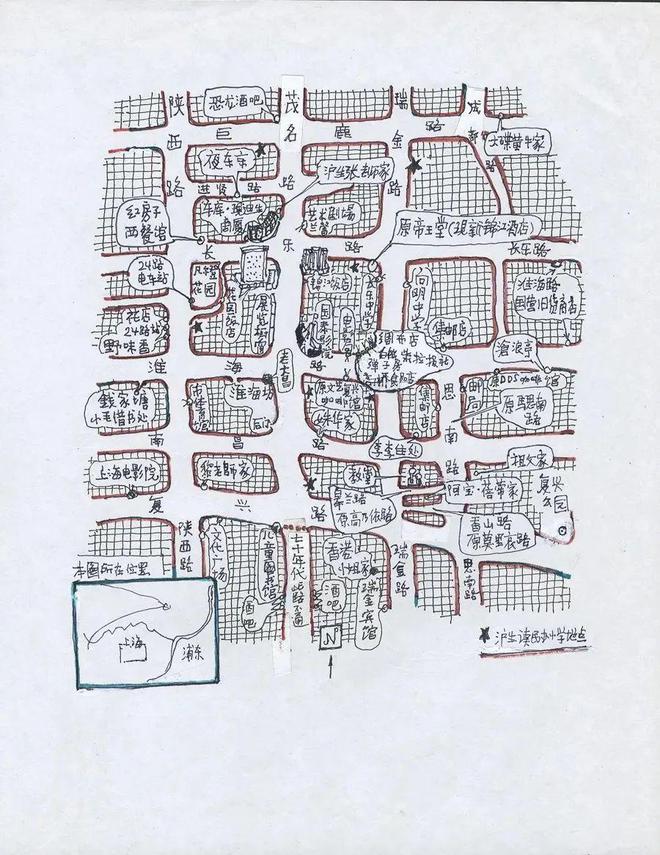 陕西路
茂名路
瑞金路
成都路
恐龙酒吧
巨鹿路
大碟黄牛家
夜东京
进贤路
沪生张老师家
红房子
西餐馆
艺术剧场
兰馨
原帝王堂(现新锦江酒店)
长乐路
长乐路
24路
电车站
凡尔登
花园
花园饭店
国泰影院
向明中学
淮海路
国营旧货商店
花店
24路站
野味香
集邮店
沧浪亭
淮海路
老大昌
弹子房
钱家塘
小毛借书处
淮海坊
后门
原文艺复兴
咖啡馆
姝华家
集邮店
思南路
邮局
原DDS咖啡馆
原马思南
路
南昌路
李李住处
上海电影院
徐老师家
教堂
祖父家
复兴
公园
皋兰路
原高乃依路
阿宝·蓓蒂家
香山路
原莫里哀路
复兴路
陕西路
文化广场
儿童图书馆
酒吧
七十年代此路不通
香港
小姐家
酒吧
瑞金宾馆
瑞金路
思南路
本图所在位置
上海
浦东
N
沪生读民办小学地点